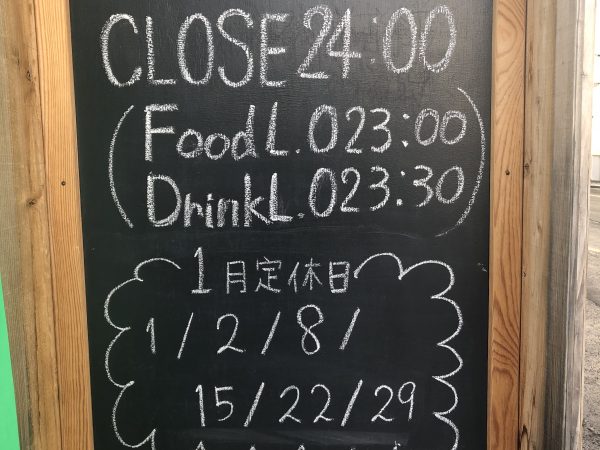 CLOSE 24:00
(Food L.O 23:00
Drink L.O 23:30)
1月定休日
1/2/8/
15/22/29